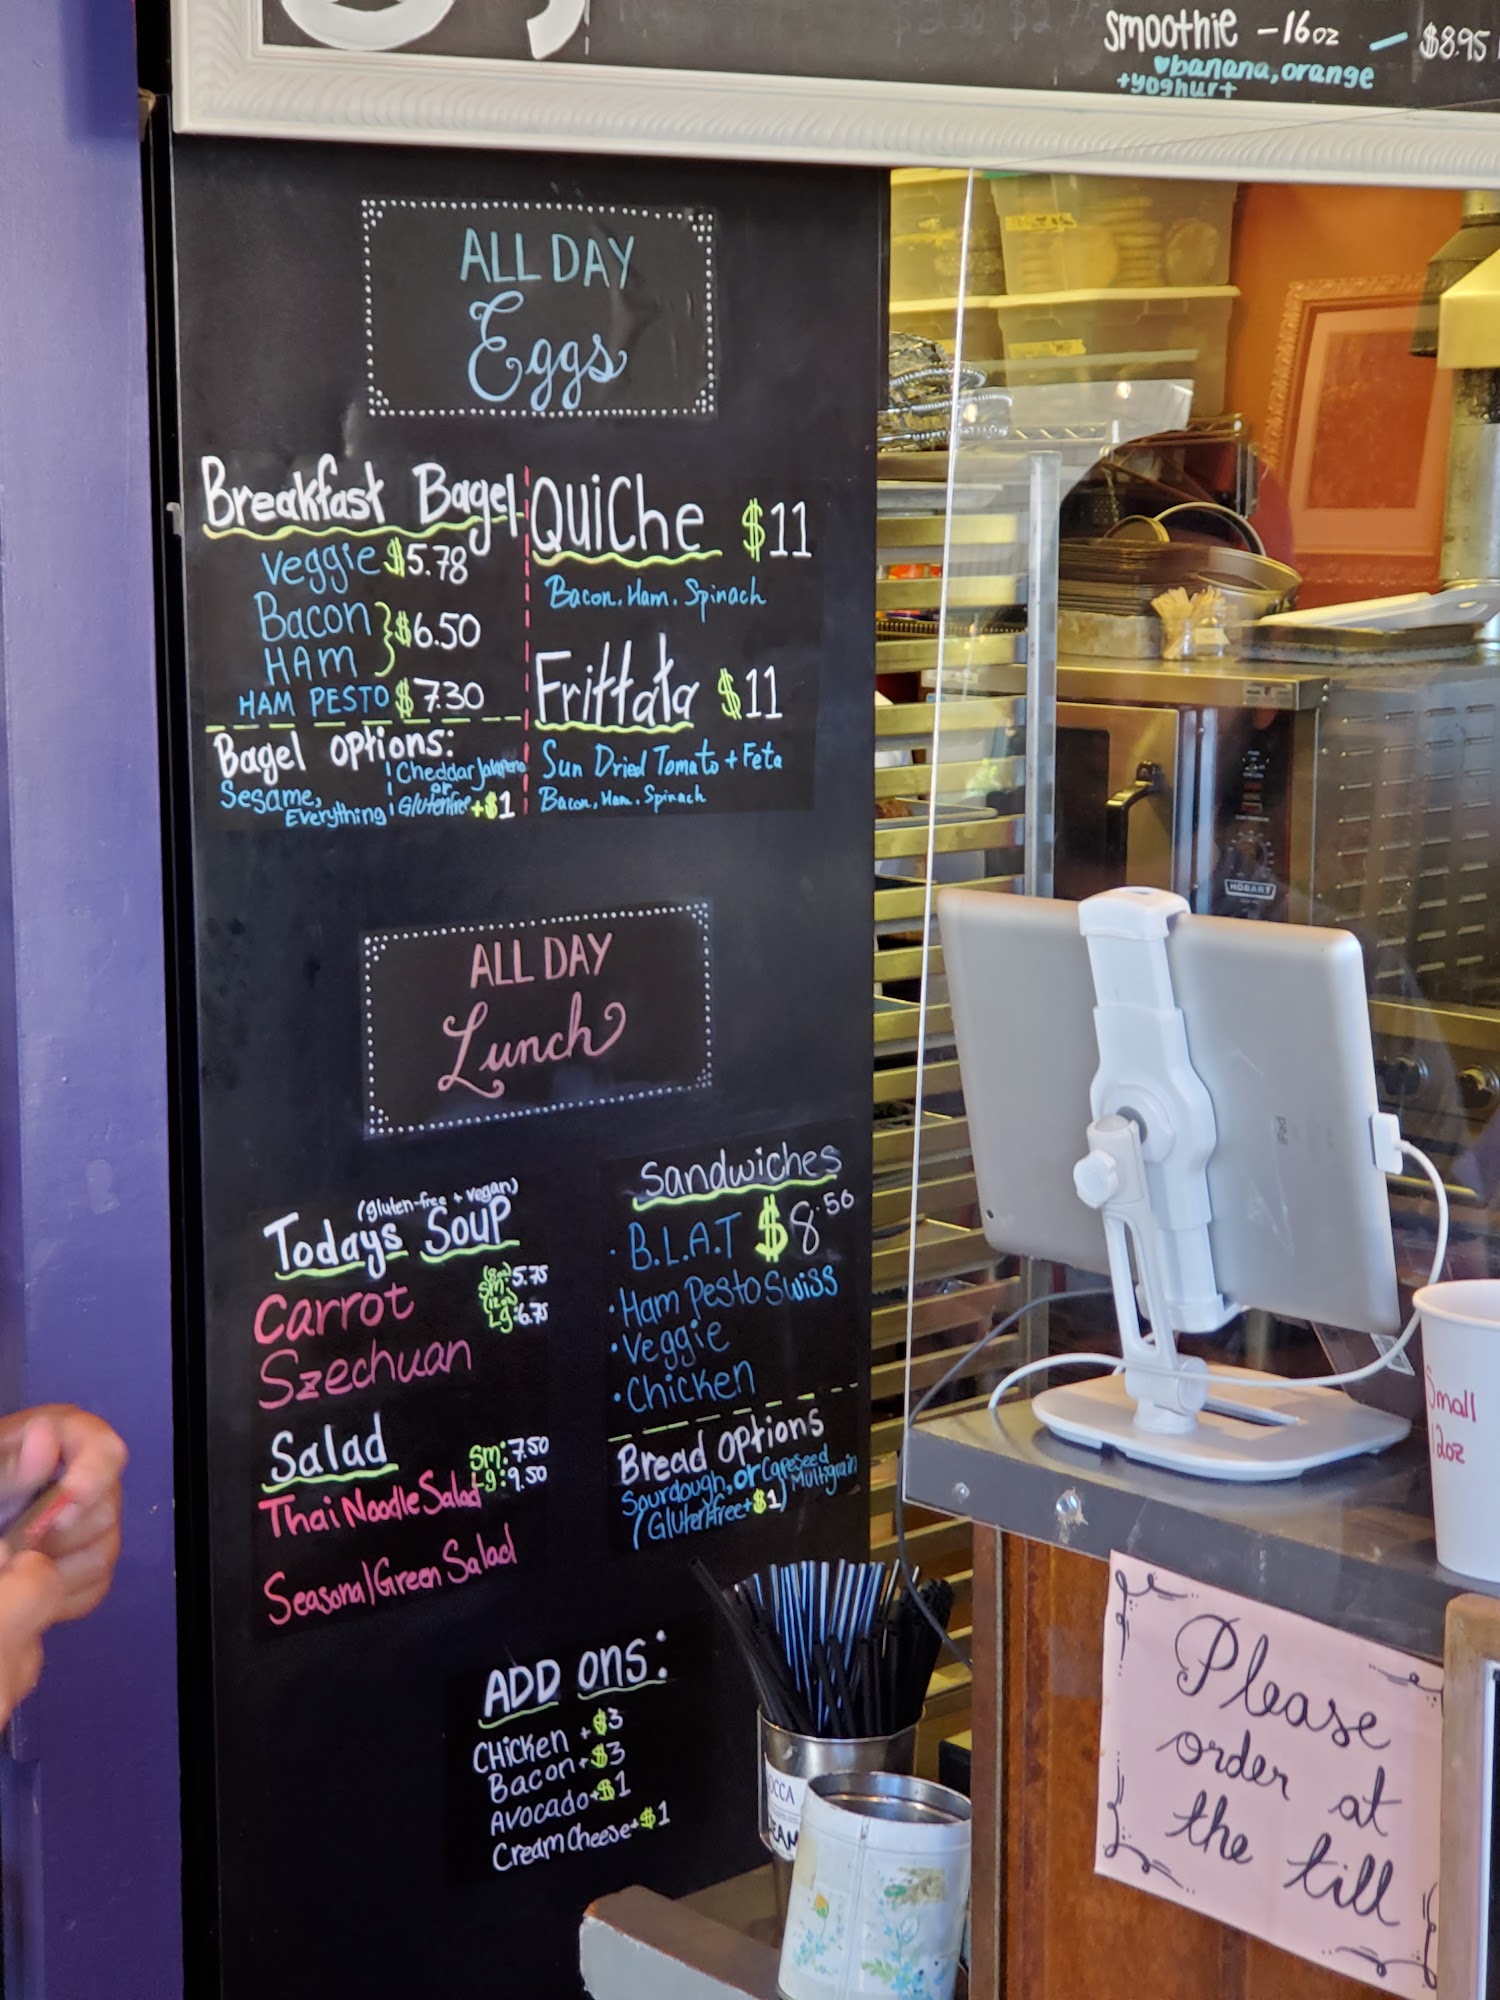 smoothie - 16oz - $8.95
♥banana, orange
+yoghurt
ALL DAY
Eggs
Breakfast Bagel
Veggie $5.78
Bacon
HAM } $6.50
HAM PESTO $7.30
Bagel options:
Sesame,
Everything
Cheddar Jalapeno
or
Glutenfree +$1
QUiChe $11
Bacon, Ham, Spinach
Frittata $11
Sun Dried Tomato + Feta
Bacon, Ham, Spinach
ALL DAY
Lunch
(gluten-free + vegan)
Todays Soup
Carrot
Szechuan
(8oz) sm: 5.75
(12oz) Lg: 6.75
Salad
Sm: 7.50
Lg: 9.50
Thai Noodle Salad
Seasonal Green Salad
Sandwiches
• B.L.A.T $8.50
• Ham Pesto Swiss
• Veggie
• Chicken
Bread options
Sourdough, or Capeseed Multigrain
(Gluten free + $1)
ADD ons:
CHicken + $3
Bacon + $3
Avocado + $1
Cream Cheese + $1
HOBART
iPad
Small
12oz
Please
order at
the till